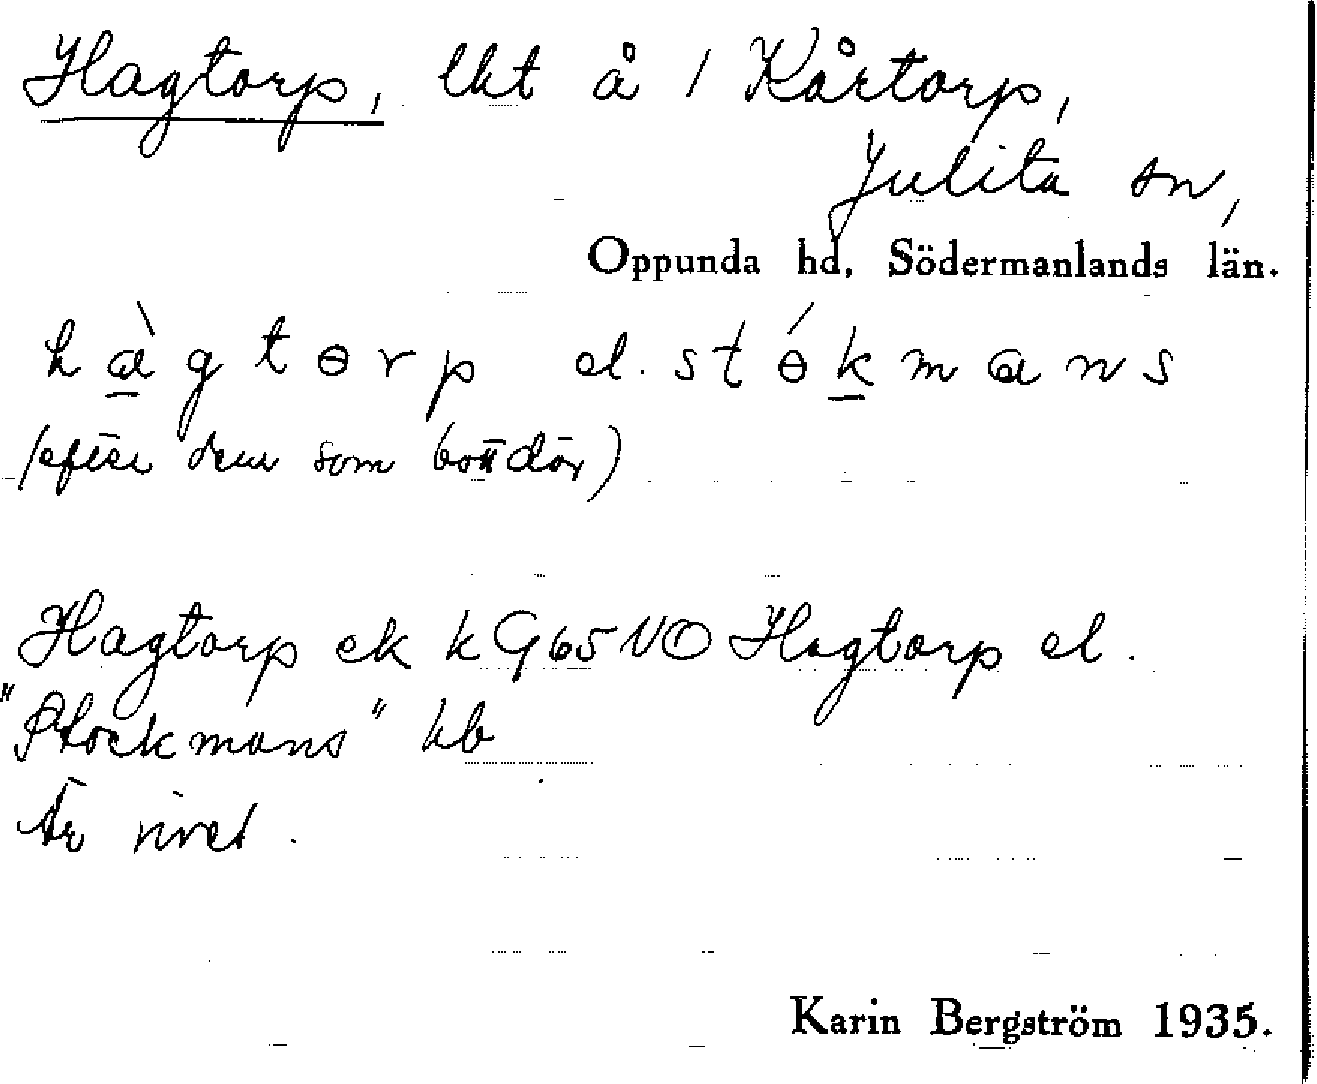 Hagtorp, lkt å 1 Kårtorp,
Julita sn,
Oppunda hd, Södermanlands län.
hàgtɵrp el. stɵ́kmans
(efter dem som bott där)
Hagtorp ek k G65 NO Hagtorp el.
"Stockmans" kb
Är rivet.
Karin Bergström 1935.